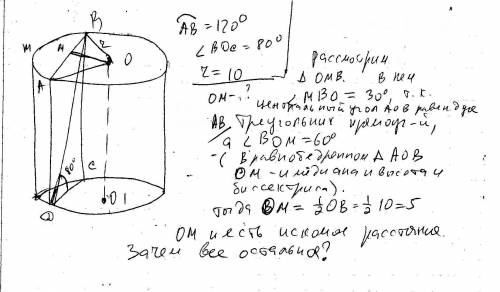 B
M
M
r
O
A
80°
C
D
O1
AB = 120°
∠BDC = 80°
r = 10
OM - ?
рассмотрим
Δ OMB. В нем
∠MBO = 30°, т.к.
центральный угол AOB равен дуге
AB, треугольник прямоуг-й,
а ∠BOM = 60°
(В равнобедренном Δ AOB
OM - и медиана и высота и
биссектриса).
тогда OM = ½OB = ½ 10 = 5
OM и есть искомое расстояние.
Зачем все остальное?